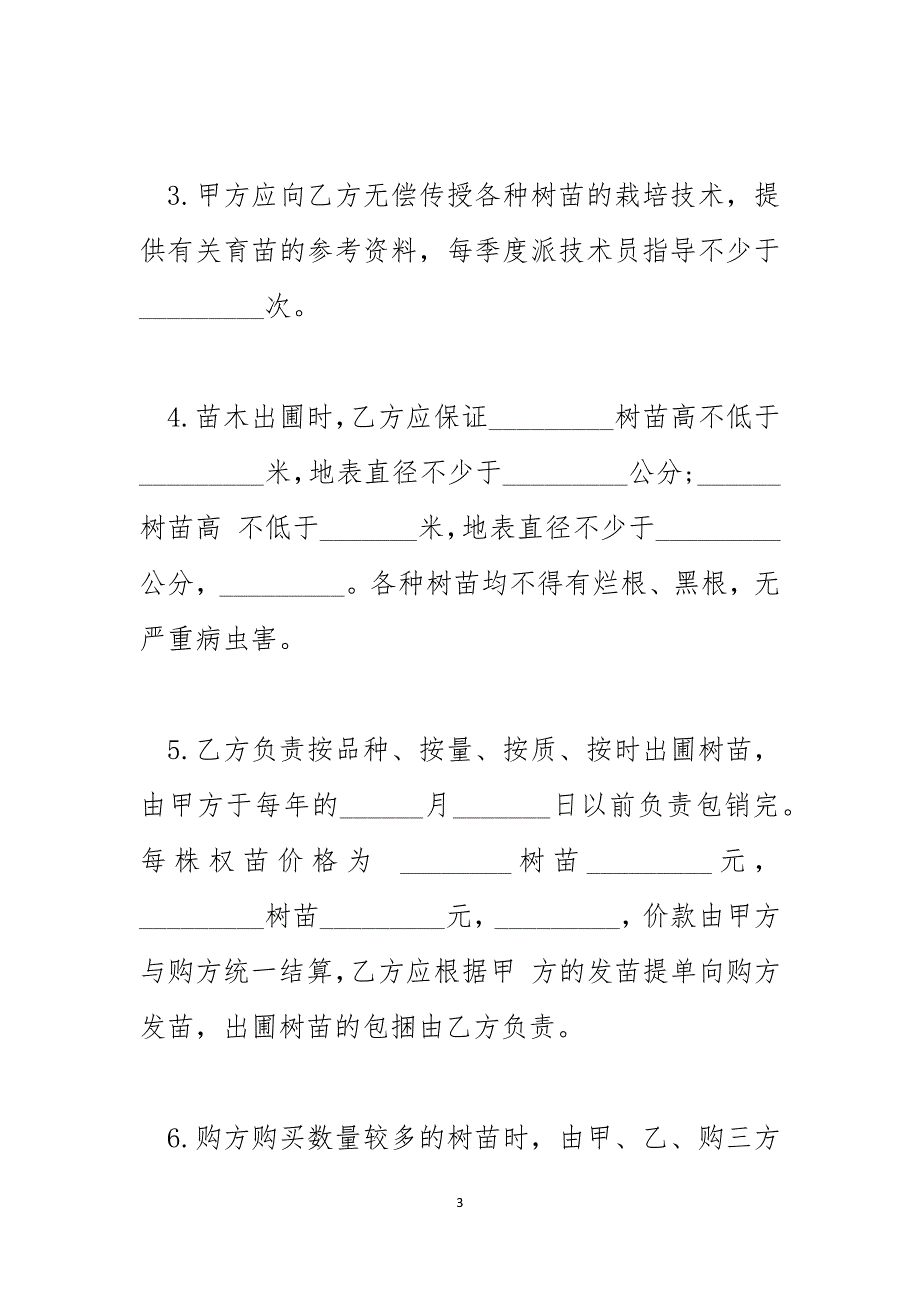 3.甲方应向乙方无偿传授各种树苗的栽培技术，提
供有关育苗的参考资料，每季度派技术员指导不少于
_________次。
4.苗木出圃时,乙方应保证_________树苗高不低于
_________米,地表直径不少于_________公分;______
树苗高 不低于_______米,地表直径不少于_________
公分，_________。各种树苗均不得有烂根、黑根，无
严重病虫害。
5.乙方负责按品种、按量、按质、按时出圃树苗，
由甲方于每年的______月_______日以前负责包销完。
每株权苗价格为 ________树苗_________元，
_________树苗_________元，_________，价款由甲方
与购方统一结算,乙方应根据甲 方的发苗提单向购方
发苗，出圃树苗的包捆由乙方负责。
6.购方购买数量较多的树苗时，由甲、乙、购三方
3